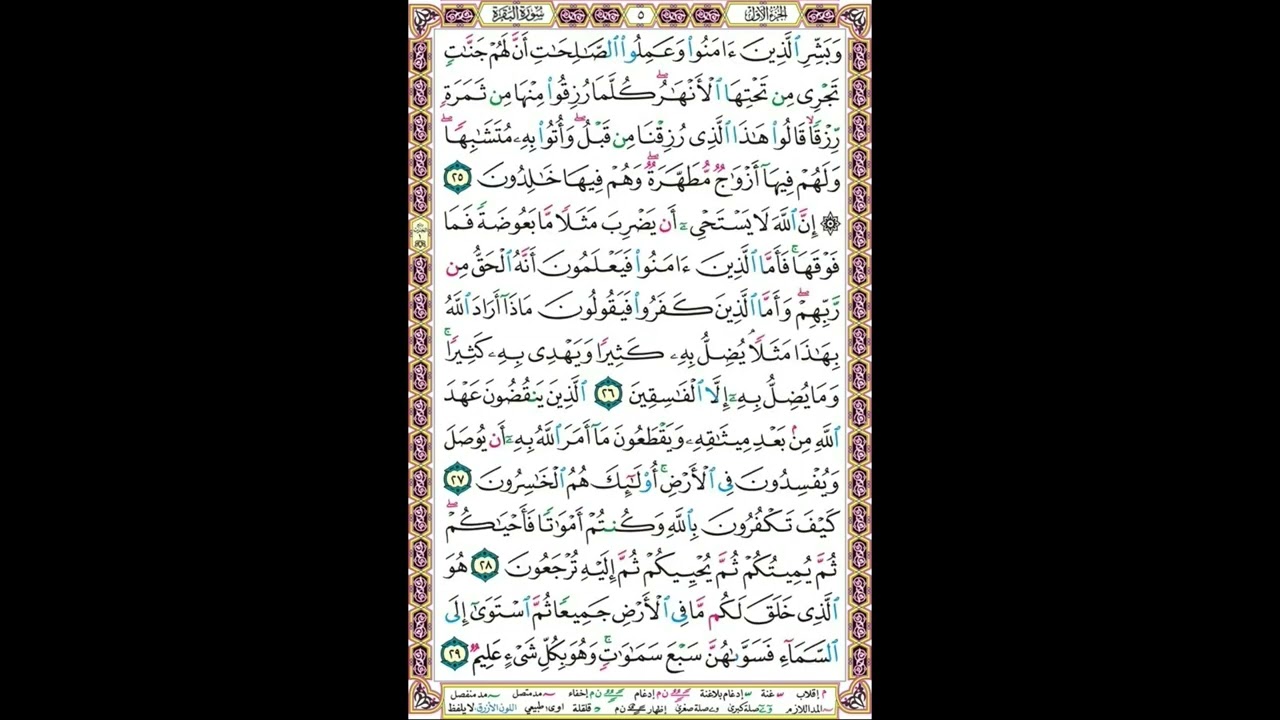 الجزء الأول
٥
سورة البقرة
وَبَشِّرِ ٱلَّذِينَ ءَامَنُوا۟ وَعَمِلُوا۟ ٱلصَّـٰلِحَـٰتِ أَنَّ لَهُمْ جَنَّـٰتٍۢ
تَجْرِى مِن تَحْتِهَا ٱلْأَنْهَـٰرُ ۖ كُلَّمَا رُزِقُوا۟ مِنْهَا مِن ثَمَرَةٍۢ
رِّزْقًۭا ۙ قَالُوا۟ هَـٰذَا ٱلَّذِى رُزِقْنَا مِن قَبْلُ ۖ وَأُتُوا۟ بِهِۦ مُتَشَـٰبِهًۭا ۖ
وَلَهُمْ فِيهَآ أَزْوَٰجٌۭ مُّطَهَّرَةٌۭ ۖ وَهُمْ فِيهَا خَـٰلِدُونَ ٢٥
۞ إِنَّ ٱللَّهَ لَا يَسْتَحْىِۦٓ أَن يَضْرِبَ مَثَلًۭا مَّا بَعُوضَةًۭ فَمَا
فَوْقَهَا ۚ فَأَمَّا ٱلَّذِينَ ءَامَنُوا۟ فَيَعْلَمُونَ أَنَّهُ ٱلْحَقُّ مِن
رَّبِّهِمْ ۖ وَأَمَّا ٱلَّذِينَ كَفَرُوا۟ فَيَقُولُونَ مَاذَآ أَرَادَ ٱللَّهُ
بِهَـٰذَا مَثَلًۭا ۘ يُضِلُّ بِهِۦ كَثِيرًۭا وَيَهْدِى بِهِۦ كَثِيرًۭا ۚ
وَمَا يُضِلُّ بِهِۦٓ إِلَّا ٱلْفَـٰسِقِينَ ٢٦ ٱلَّذِينَ يَنقُضُونَ عَهْدَ
ٱللَّهِ مِنۢ بَعْدِ مِيثَـٰقِهِۦ وَيَقْطَعُونَ مَآ أَمَرَ ٱللَّهُ بِهِۦٓ أَن يُوصَلَ
وَيُفْسِدُونَ فِى ٱلْأَرْضِ ۚ أُو۟لَـٰٓئِكَ هُمُ ٱلْخَـٰسِرُونَ ٢٧
كَيْفَ تَكْفُرُونَ بِٱللَّهِ وَكُنتُمْ أَمْوَٰتًۭا فَأَحْيَـٰكُمْ ۖ
ثُمَّ يُمِيتُكُمْ ثُمَّ يُحْيِيكُمْ ثُمَّ إِلَيْهِ تُرْجَعُونَ ٢٨ هُوَ
ٱلَّذِى خَلَقَ لَكُم مَّا فِى ٱلْأَرْضِ جَمِيعًۭا ثُمَّ ٱسْتَوَىٰٓ إِلَى
ٱلسَّمَآءِ فَسَوَّىٰهُنَّ سَبْعَ سَمَـٰوَٰتٍۢ ۚ وَهُوَ بِكُلِّ شَىْءٍ عَلِيمٌۭ ٢٩
م إقلاب غنة إدغام بلاغنة ن م إدغام ن م إخفاء مد متصل مد منفصل
المد اللازم صلة كبرى صلة صغرى إظهار ن م قلقلة اوى: طبيعي اللون الأزرق لا يلفظ